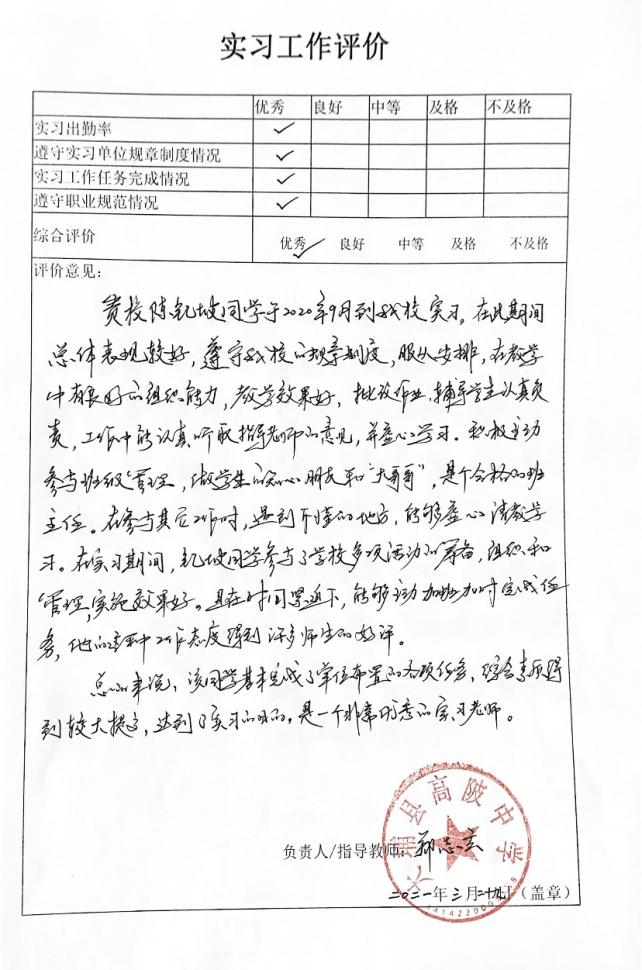 实习工作评价
优秀 良好 中等 及格 不及格
实习出勤率 ✓
遵守实习单位规章制度情况 ✓
实习工作任务完成情况 ✓
遵守职业规范情况 ✓
综合评价 优秀✓ 良好 中等 及格 不及格
评价意见：
贵校陈凯坡同学于2020年9月到我校实习。在此期间
总体表现较好，遵守我校的规章制度，服从安排，在教学
中有良好的组织能力，教学效果好，批改作业，辅导学生认真负
责，工作中能认真听取指导老师的意见，并虚心学习。积极主动
参与班级管理，做学生的知心朋友和“大哥哥”，是个合格的班
主任。在参与其它工作时，遇到不懂的地方，能够虚心请教学
习。在实习期间，凯坡同学参与了学校多项活动的筹备，组织和
管理，实施效果好。且在时间紧迫下，能够主动加班加时完成任
务，他的工作态度得到许多师生的好评。
总的来说，该同学基本完成了单位布置的各项任务，综合素质得
到较大提高，达到了实习的目的，是一个非常优秀的实习老师。
负责人/指导教师：郑志云
大埔县高陂中学
二〇二一年三月二十九日（盖章）